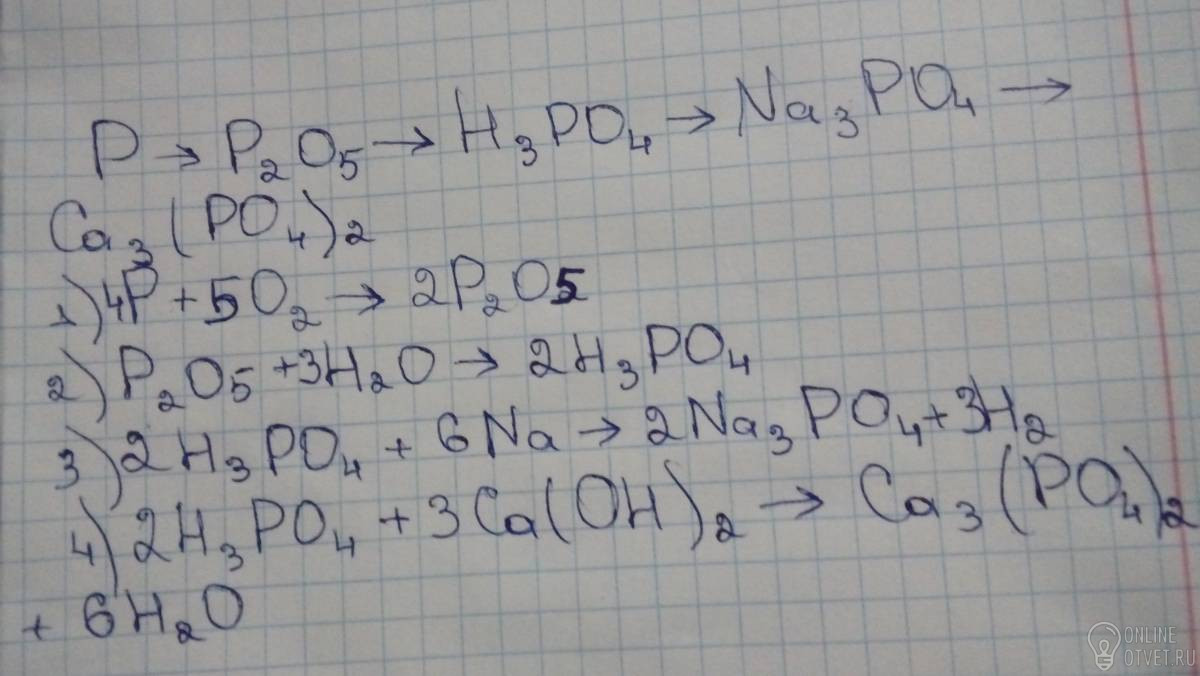 P → P₂O₅ → H₃PO₄ → Na₃PO₄ →
Ca₃(PO₄)₂
1) 4P + 5O₂ → 2P₂O₅
2) P₂O₅ + 3H₂O → 2H₃PO₄
3) 2H₃PO₄ + 6Na → 2Na₃PO₄ + 3H₂
4) 2H₃PO₄ + 3Ca(OH)₂ → Ca₃(PO₄)₂
+ 6H₂O
ONLINE
OTVET.RU